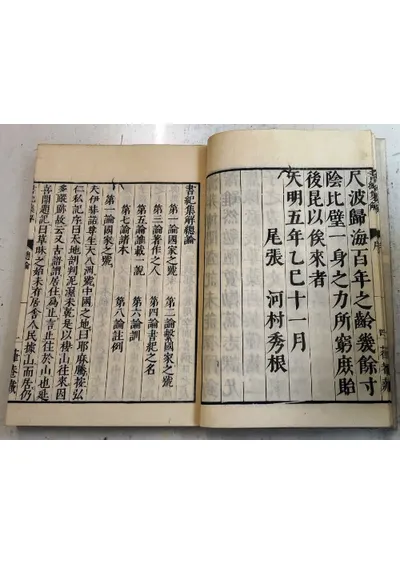 書紀集解 序 四
尺波歸海百年之齡幾餘寸
陰比璧一身之力所窮庶貽
後昆以俟來者
天明五年乙巳十一月
尾張 河村秀根
書紀集解總論
第一論國家之號 第二論繫國家之號
第三論著作之人 第四論書紀之名
第五論載一說 第六論訓
第七論諸本 第八論註例
夫伊弉諾尊生大八洲號中國之地曰耶麻騰按弘
仁私記序曰天地剖判泥濕未乾是以栖山往來因
多蹤跡故云又古語謂居住爲止言止住於山也延
喜開題記曰草昧之始未有居舍人民據山而居仍
總論